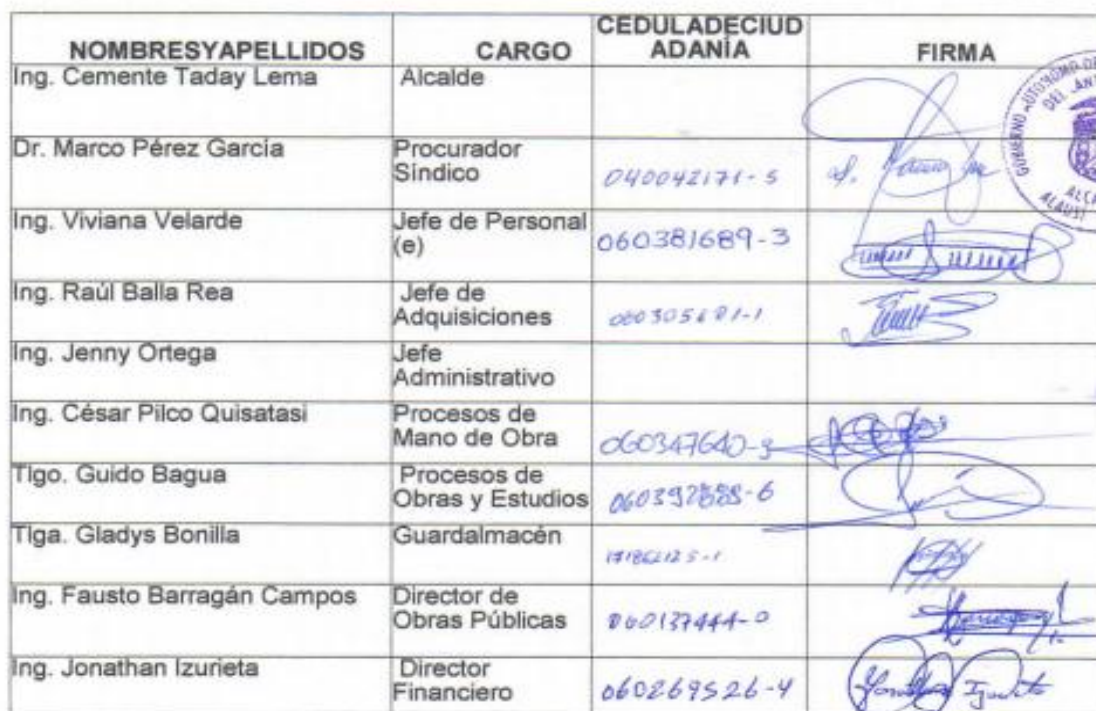 NOMBRESYAPELLIDOS CARGO CEDULADECIUD
ADANÍA FIRMA
Ing. Cemente Taday Lema Alcalde
Dr. Marco Pérez García Procurador
Síndico 040042171-5
Ing. Viviana Velarde Jefe de Personal
(e) 060381689-3
Ing. Raúl Balla Rea Jefe de
Adquisiciones
Ing. Jenny Ortega Jefe
Administrativo
Ing. César Pilco Quisatasi Procesos de
Mano de Obra 060347640-3
Tlgo. Guido Bagua Procesos de
Obras y Estudios
Tlga. Gladys Bonilla Guardalmacén
Ing. Fausto Barragán Campos Director de
Obras Públicas 060137444-0
Ing. Jonathan Izurieta Director
Financiero 060269526-4
GOBIERNO AUTONOMO DE
DEL
ALAUSI